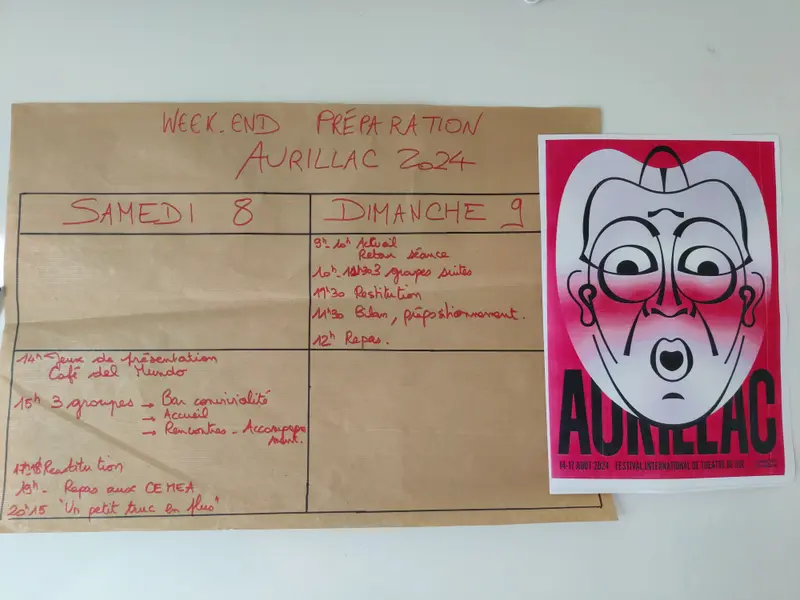 WEEK.END PRÉPARATION
AURILLAC 2024
SAMEDI 8
14h Jeux de présentation
Café del Mundo
15h 3 groupes → Bar convivialité
→ Accueil
→ Rencontres - Accompagne
ment.
Restitution
19h - Repas aux CEMEA
20h15 "Un petit truc en plus"
DIMANCHE 9
9h-10h Accueil
Retour séance
10h- 3 groupes suites
Restitution
11h30 Bilan, prépositionnement.
12h Repas.
AURILLAC
14-17 AOÛT 2024 FESTIVAL INTERNATIONAL DE THÉÂTRE DE RUE